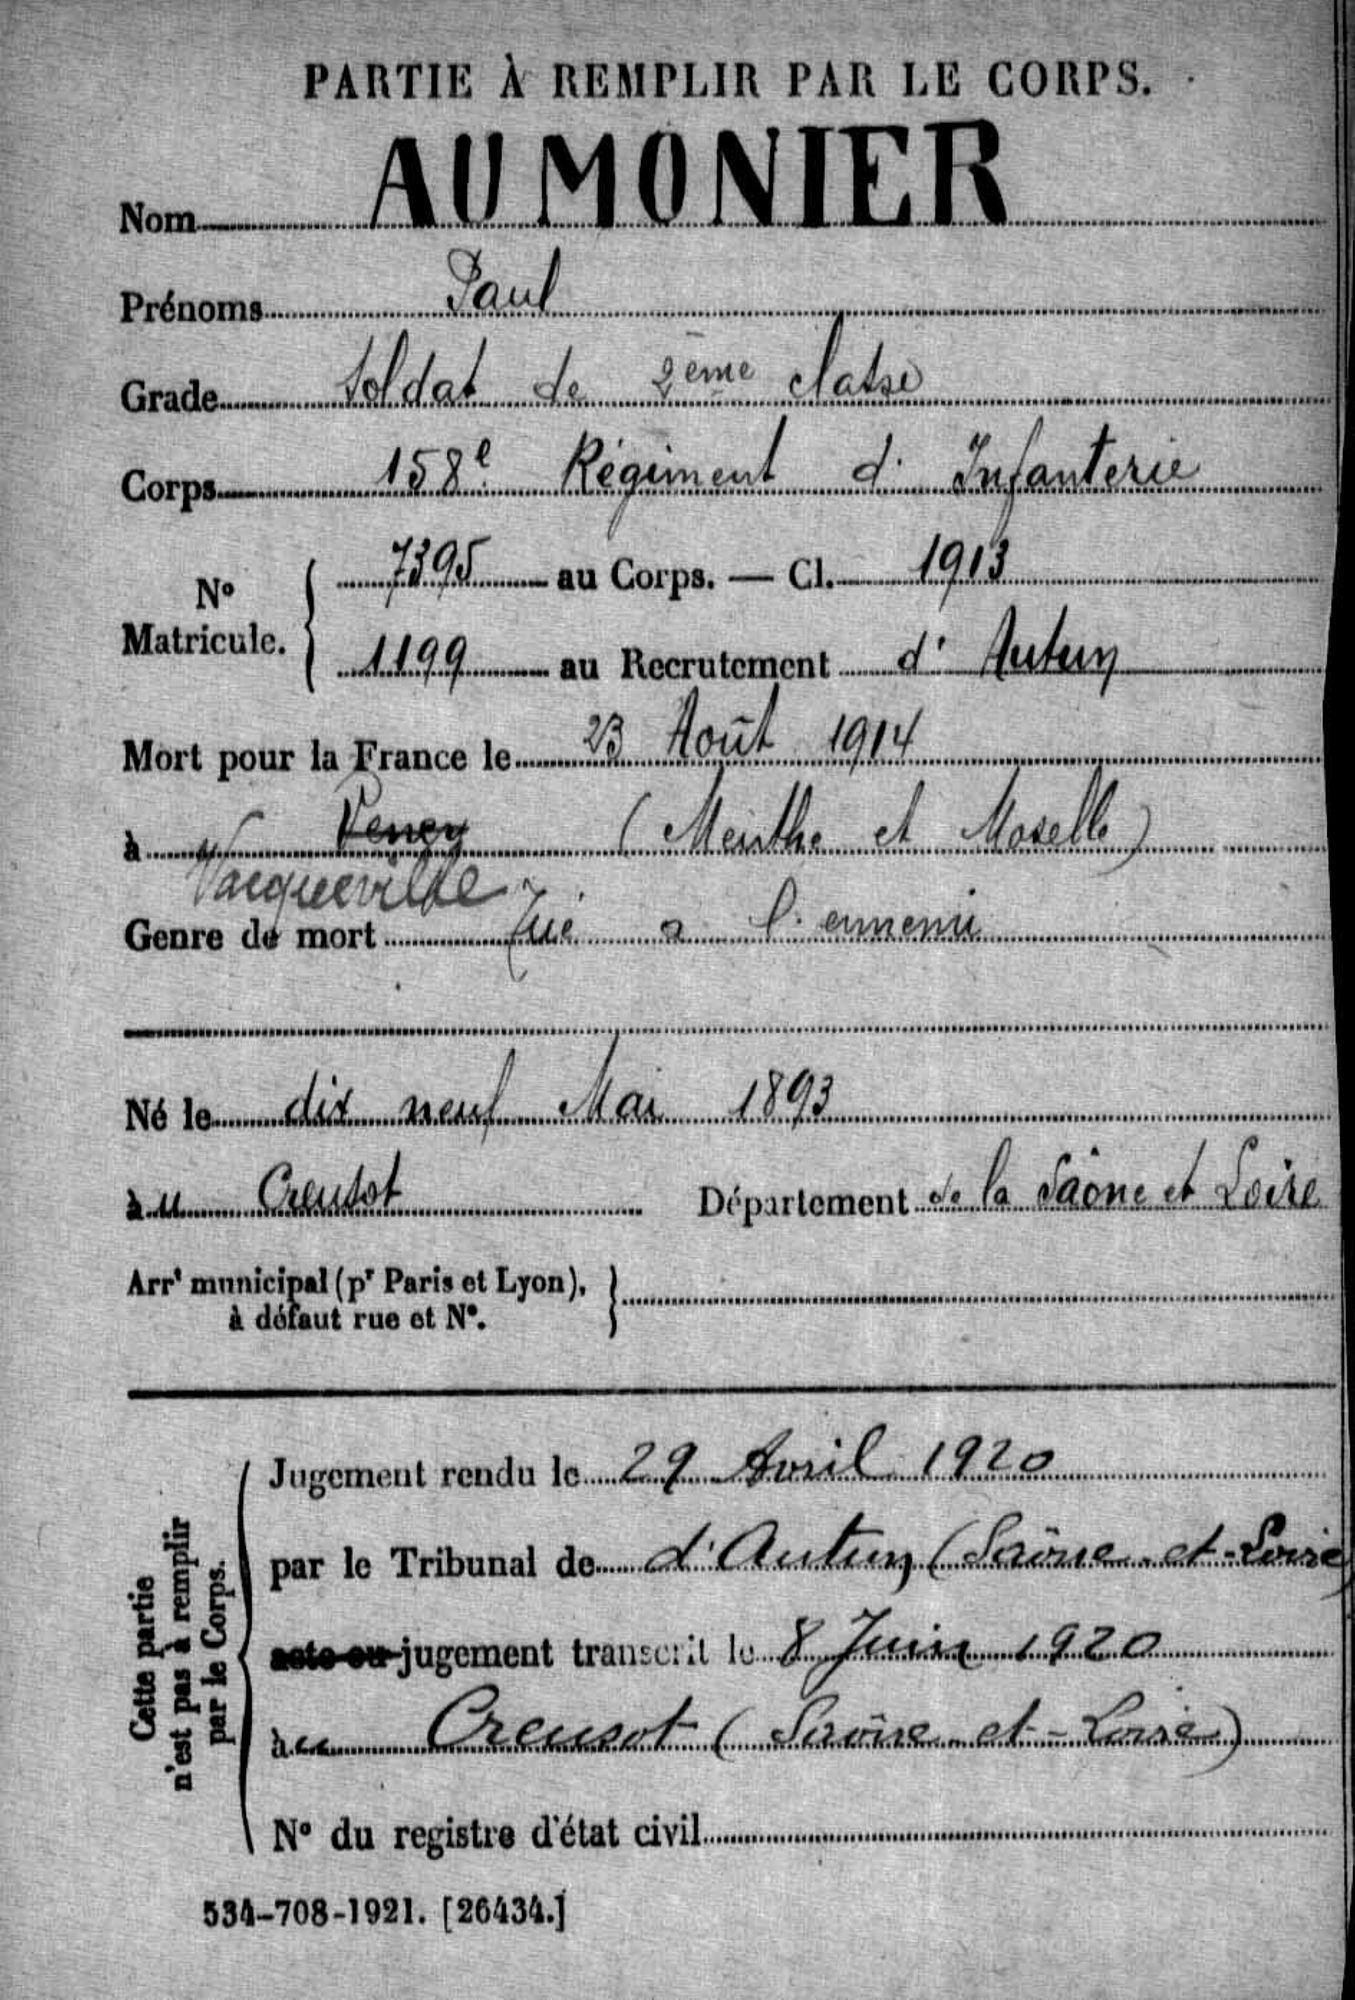 PARTIE À REMPLIR PAR LE CORPS.
Nom AUMONIER
Prénoms Paul
Grade Soldat de 2ème classe
Corps 158e Régiment d' Infanterie
N° Matricule. { 7395 au Corps. — Cl. 1913
1199 au Recrutement d' Autun
Mort pour la France le 23 Août 1914
à Veney (Meurthe et Moselle)
Vacqueville
Genre de mort Tué a l' ennemi
Né le dix neuf Mai 1893
au Creusot Département de la Saône et Loire
Arrt municipal (pr Paris et Lyon), }
à défaut rue et N°.
Cette partie
n'est pas à remplir
par le Corps.
Jugement rendu le 29 Avril 1920
par le Tribunal de d'Autun (Saône-et-Loire)
acte ou jugement transcrit le 8 Juin 1920
au Creusot (Saône-et-Loire)
N° du registre d'état civil
534-708-1921. [26434.]